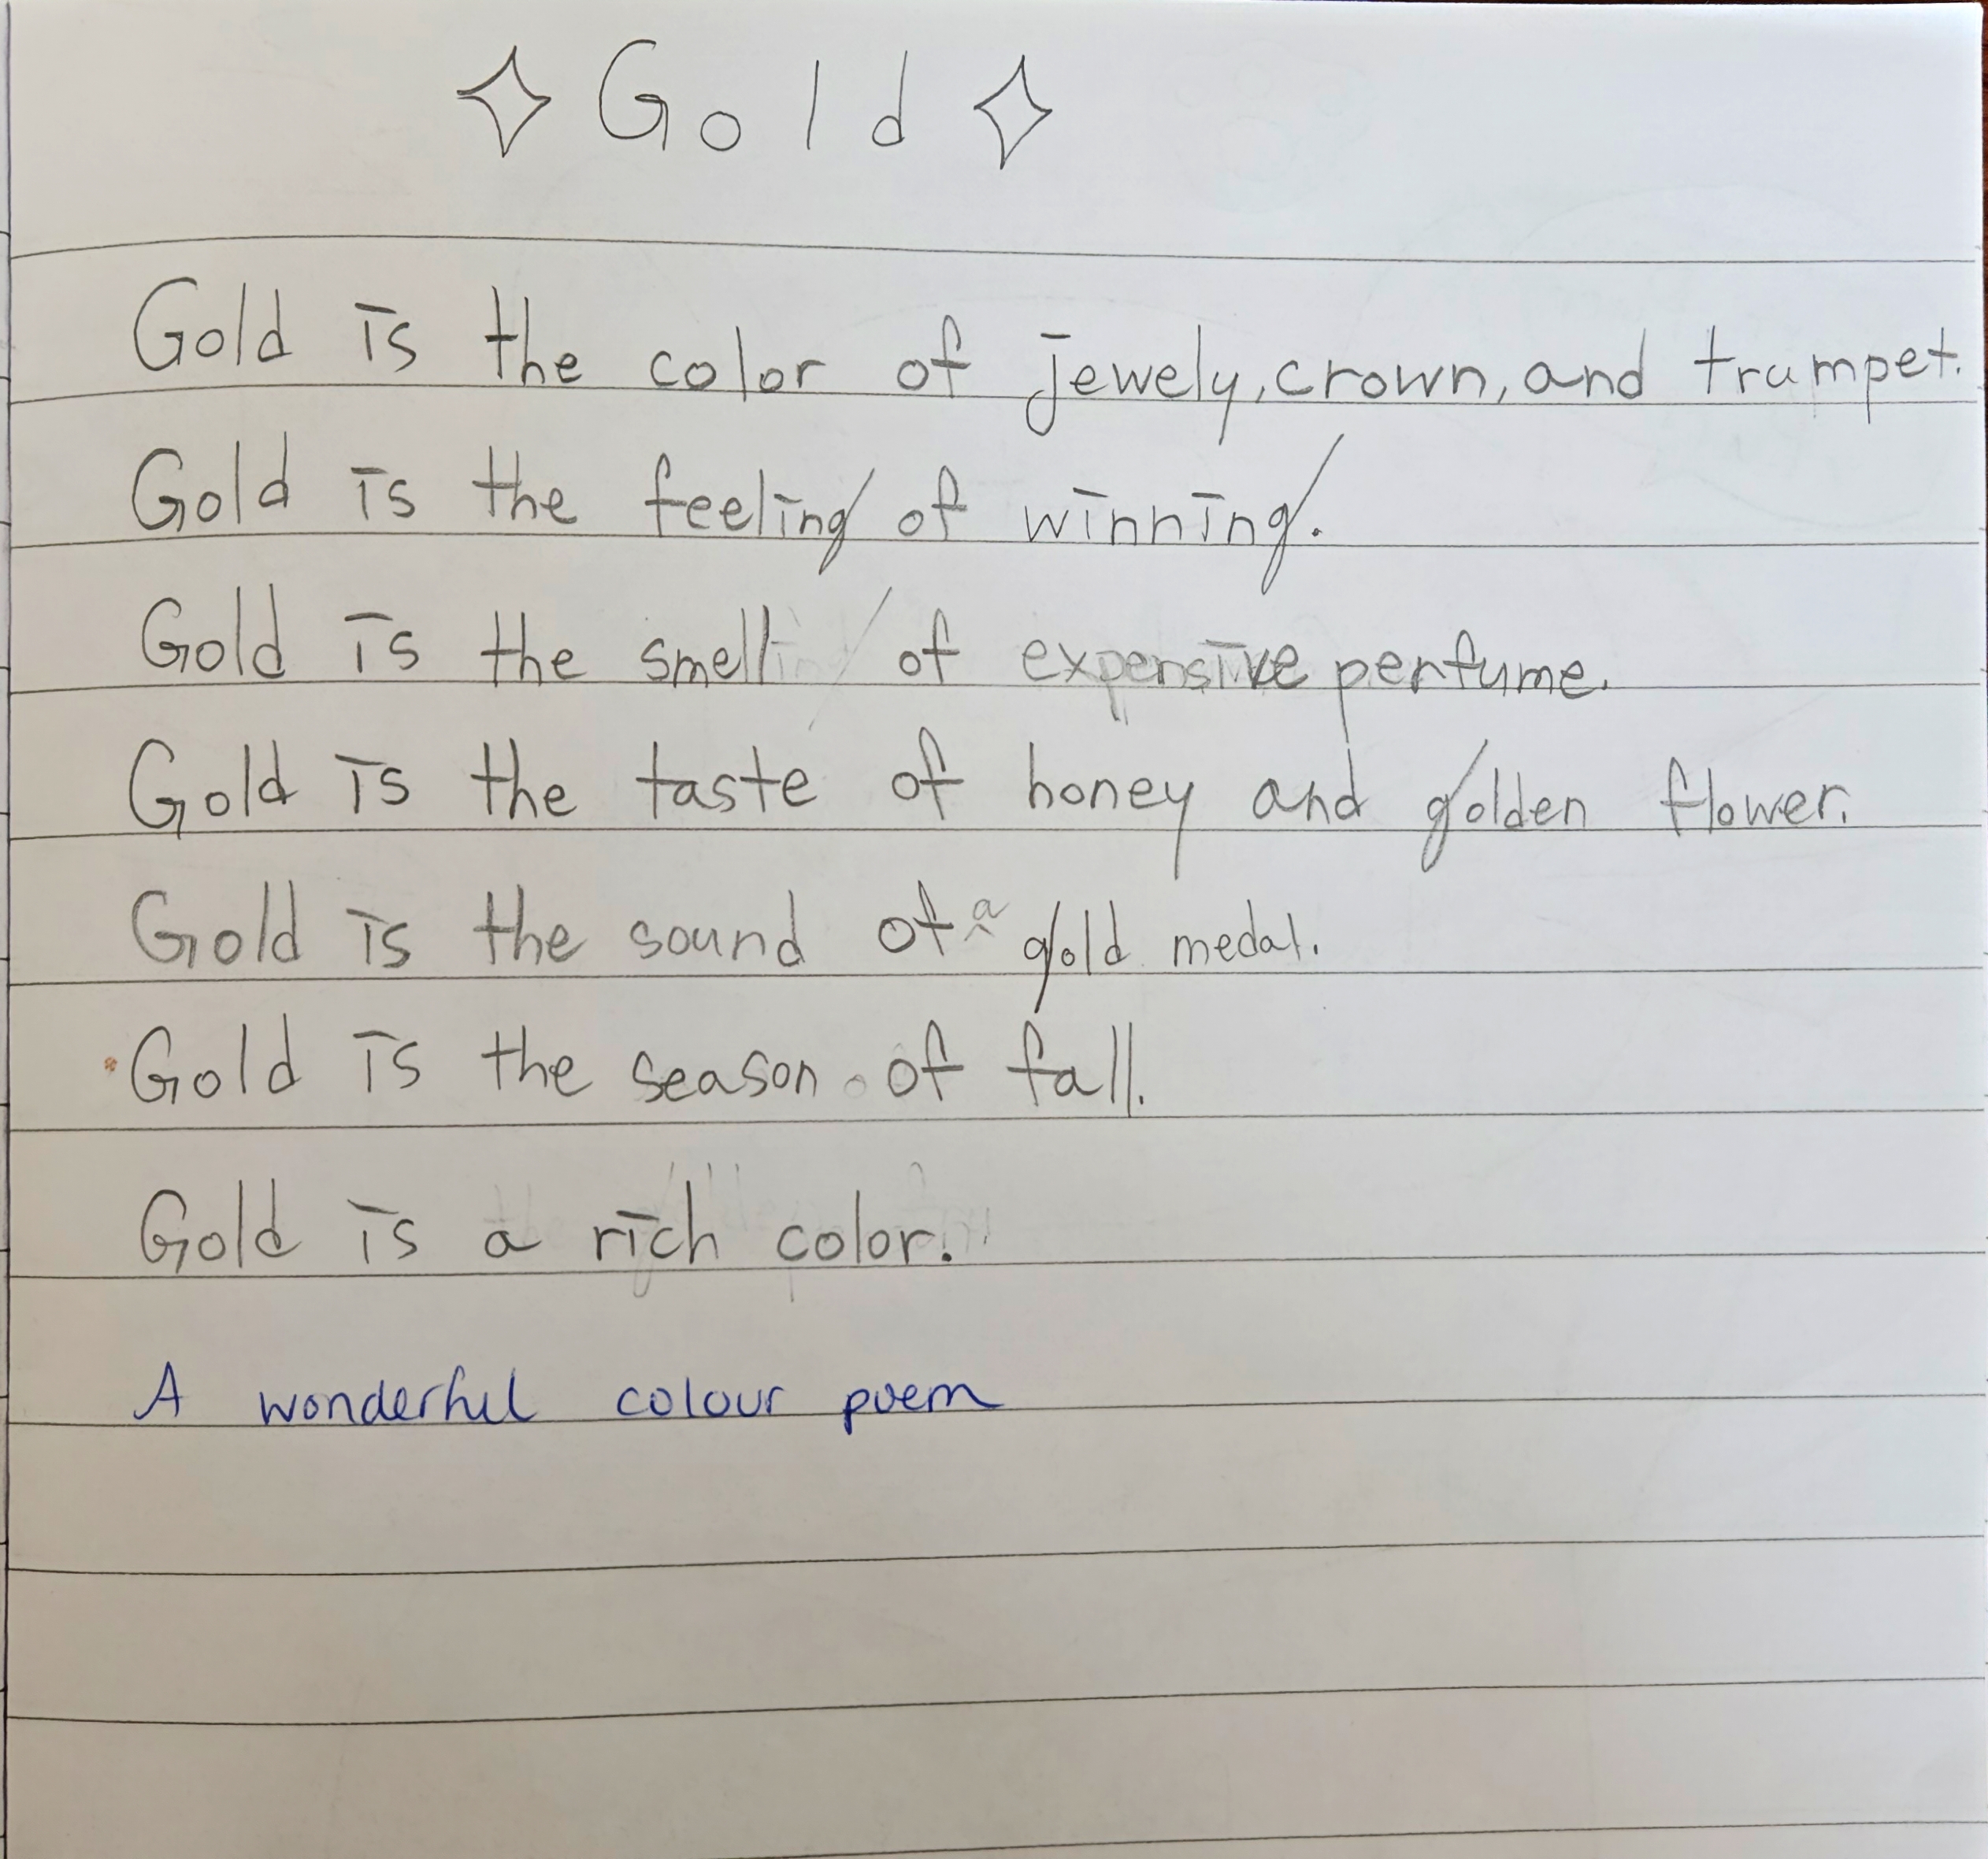 Gold
Gold is the color of jewely, crown, and trumpet.
Gold is the feeling of winning.
Gold is the smell of expensive perfume.
Gold is the taste of honey and golden flower.
Gold is the sound of a gold medal.
Gold is the season of fall.
Gold is a rich color.
A wonderful colour poem